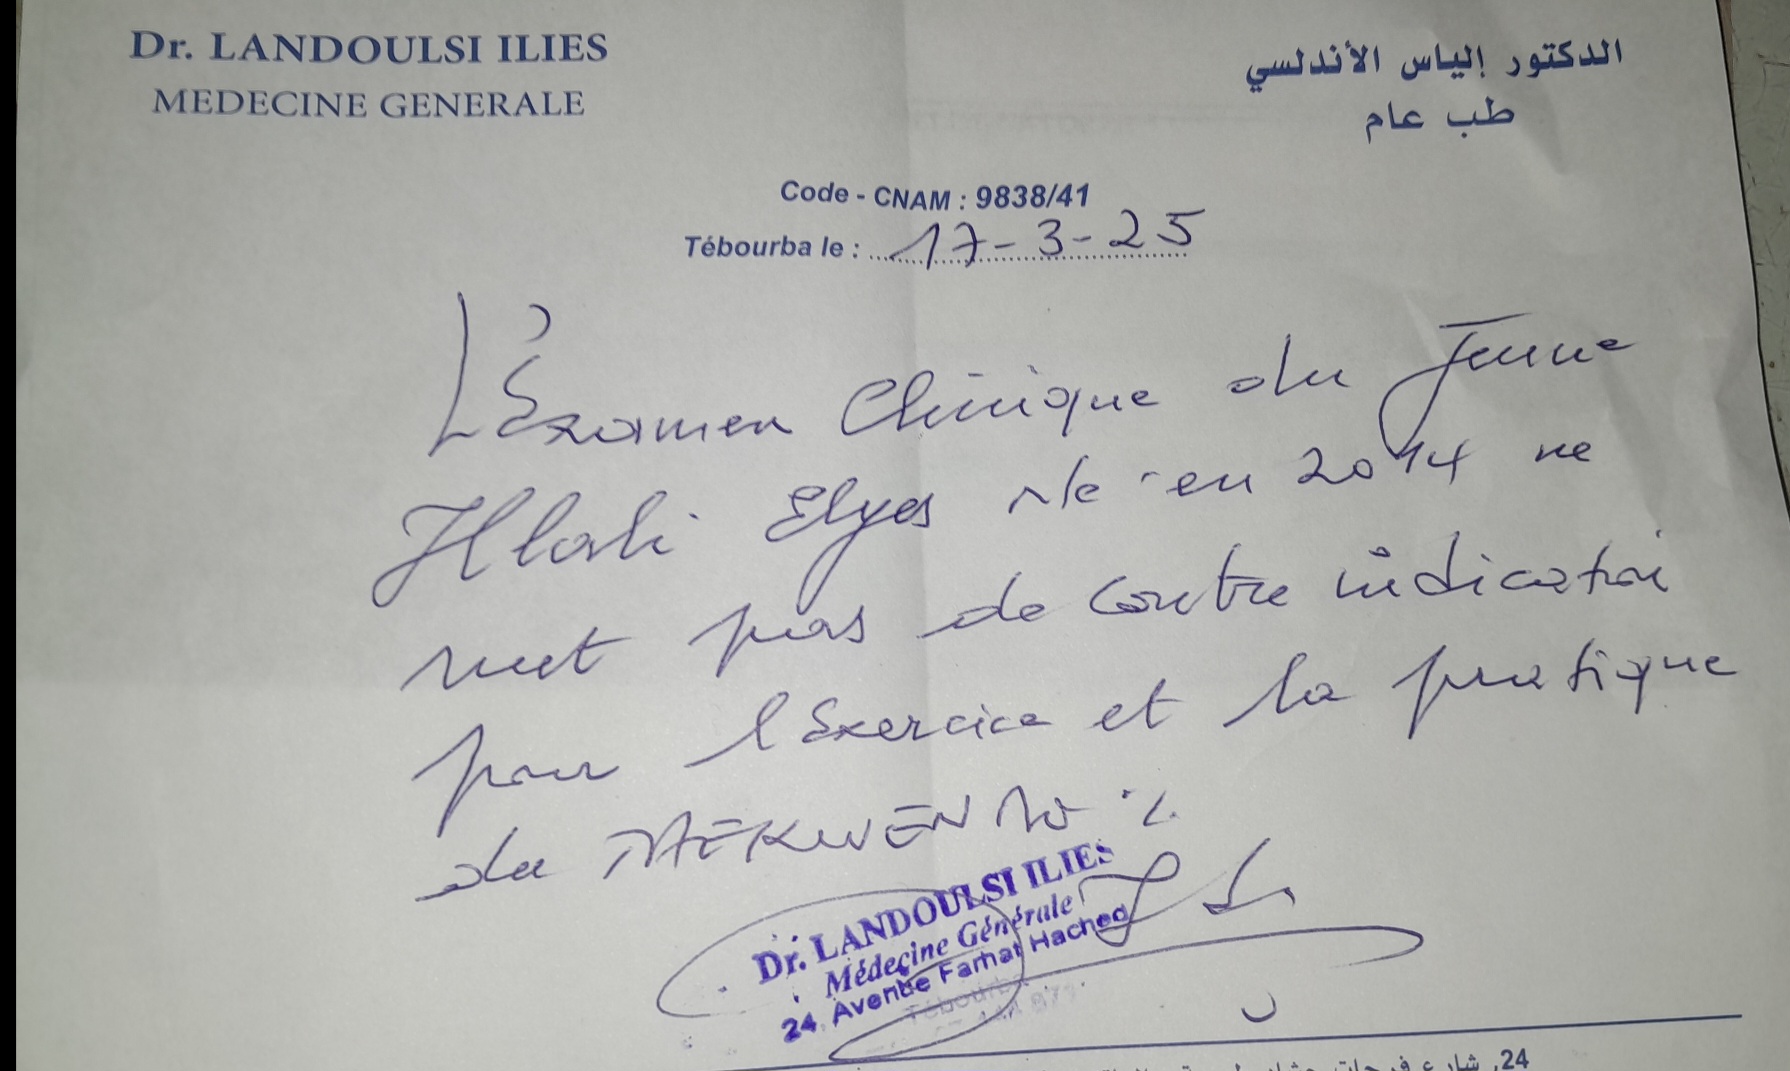 Dr. LANDOULSI ILIES
MEDECINE GENERALE
الدكتور إلياس الأندلسي
طب عام
Code - CNAM : 9838/41
Tébourba le : 17-3-25
L'Examen Clinique du Jeune
Hlali Elyes né en 2014 ne
met pas de contre indication
pour l'Exercice et la pratique
du TAEKWEN
Dr. LANDOULSI ILIES
Médecine Générale
24, Avenue Farhat Hached
Tébourba
24, شارع فرحات